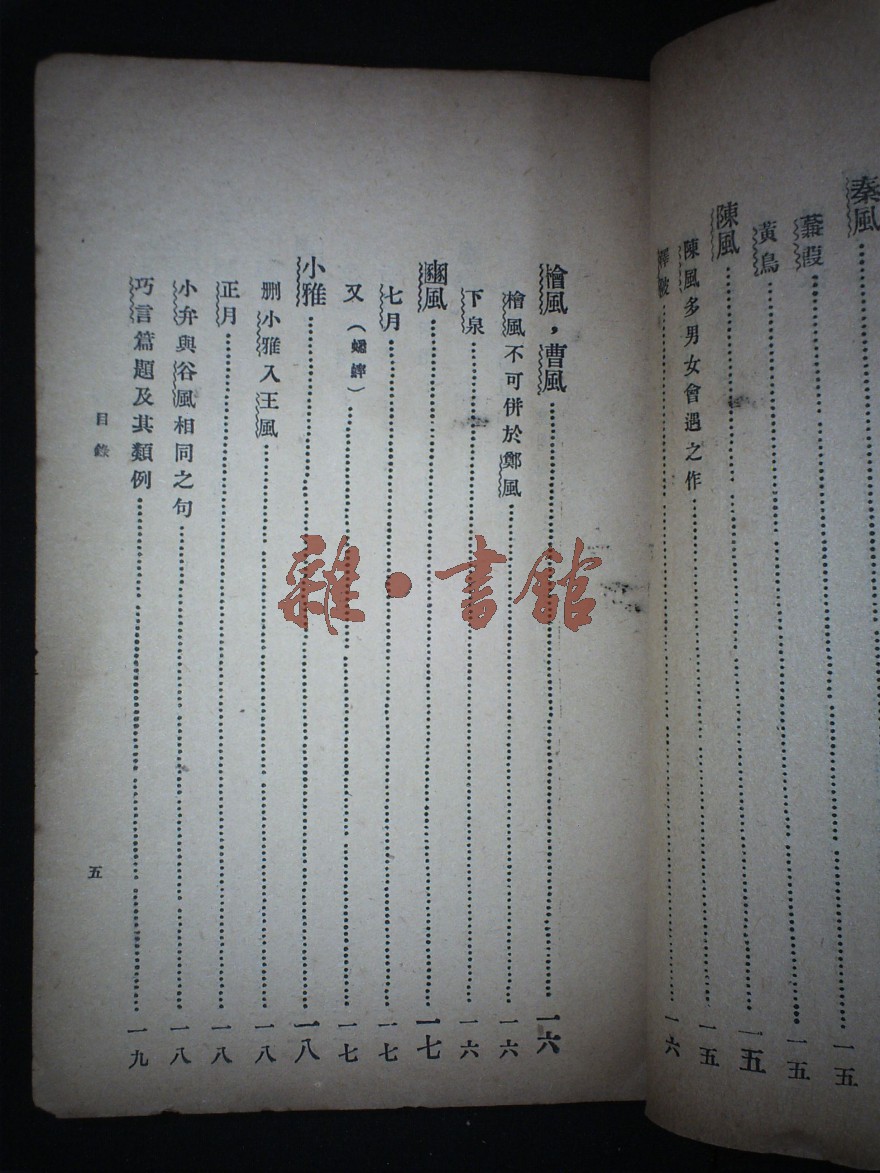 秦風
蒹葭……一五
黃鳥……一五
陳風……一五
陳風多男女會遇之作……一五
澤陂……一六
檜風，曹風……一六
檜風不可併於鄭風……一六
下泉……一六
豳風……一七
七月……一七
又（蟋蟀）……一七
小雅……一八
刪小雅入王風……一八
正月……一八
小弁與谷風相同之句……一八
巧言篇題及其類例……一九
目錄
五
雜·書館